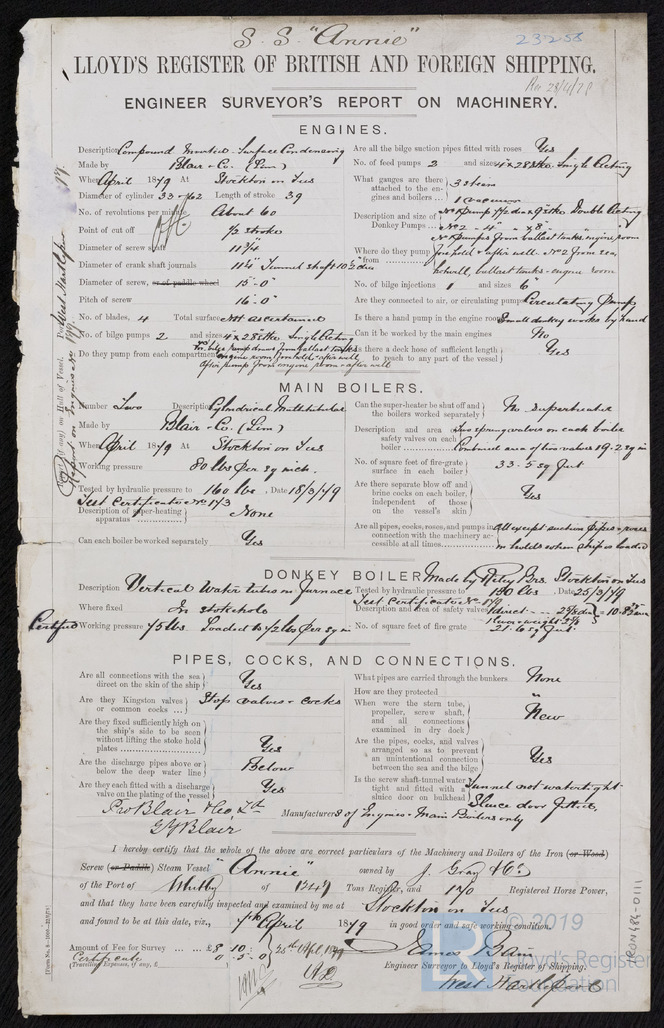 S. S. "Annie"
23258
LLOYD'S REGISTER OF BRITISH AND FOREIGN SHIPPING.
ENGINEER SURVEYOR'S REPORT ON MACHINERY.
ENGINES.
Description Compound Inverted Surface Condensing
Made by Blair & Co. (Lim)
When April 1879 At Stockton on Tees
Diameter of cylinder 33 & 62 Length of stroke 39
No. of revolutions per minute About 60
Point of cut off 1/2 stroke
Diameter of screw shaft 11 3/4
Diameter of crank shaft journals 11 3/4 Tunnel shaft 10 1/2 dia
Diameter of screw, or of paddle wheel 15 - 0"
Pitch of screw 16 - 0"
No. of blades, 4 Total surface Not ascertained
No. of bilge pumps 2 and sizes 4 x 28 stke Single Acting
Do they pump from each compartment
Are all the bilge suction pipes fitted with roses Yes
No. of feed pumps 2 and sizes 4 x 28 stke Single Acting
What gauges are there attached to the engines and boilers ... 3 steam
1 vacuum
Description and size of Donkey Pumps ... No 1 Pump 7 1/2 dia x 9 stke Double Acting
No 2 - 4" x 8"
Where do they pump from
No. of bilge injections 1 and sizes 6"
Are they connected to air, or circulating pump Circulating Pump
Is there a hand pump in the engine room Small donkey works by hand
Can it be worked by the main engines No
Is there a deck hose of sufficient length to reach to any part of the vessel Yes
MAIN BOILERS.
Number Two Description Cylindrical Multitubular
Made by Blair & Co. (Lim)
When April 1879 At Stockton on Tees
Working pressure 80 lbs per sq inch.
Tested by hydraulic pressure to 160 lbs, Date 18/3/79
Test Certificate No 173
Description of super-heating apparatus ... None
Can each boiler be worked separately Yes
Can the super-heater be shut off and the boilers worked separately No superheater
Description and area of safety valves on each boiler ... Two spring valves on each boiler
Combined area of two valves 19.2 sq in
No. of square feet of fire-grate surface in each boiler 33.5 sq feet
Are there separate blow off and brine cocks on each boiler, independent of those on the vessel's skin Yes
Are all pipes, cocks, roses, and pumps in connection with the machinery accessible at all times All except suction pipes & roses
in holds when ship is loaded
DONKEY BOILER Made by Riley Bros. Stockton on Tees
Description Vertical Water tubes in furnace
Tested by hydraulic pressure to 150 lbs. Date 25/3/79
Where fixed In stokehole
Description and area of safety valves
Certified Working pressure 75 lbs. Loaded to 72 lbs per sq in
No. of square feet of fire grate 21.6 sq feet
PIPES, COCKS, AND CONNECTIONS.
Are all connections with the sea direct on the skin of the ship Yes
Are they Kingston valves or common cocks ... Stop valves & cocks
Are they fixed sufficiently high on the ship's side to be seen without lifting the stoke hold plates Yes
Are the discharge pipes above or below the deep water line Below
Are they each fitted with a discharge valve on the plating of the vessel Yes
What pipes are carried through the bunkers None
How are they protected "
When were the stern tube, propeller, screw shaft, and all connections examined in dry dock New
Are the pipes, cocks, and valves arranged so as to prevent an unintentional connection between the sea and the bilge Yes
Is the screw shaft-tunnel water tight and fitted with a sluice door on bulkhead Tunnel not watertight
Sluice door fitted,
Pro Blair & Co, Ld Manufacturers of Engines & Main Boilers only
G Y Blair
I hereby certify that the whole of the above are correct particulars of the Machinery and Boilers of the Iron (or Wood)
Screw (or Paddle) Steam Vessel "Annie" owned by J. Gray & Co
of the Port of Whitby of 1247 Tons Register, and 170 Registered Horse Power,
and that they have been carefully inspected and examined by me at Stockton on Tees
and found to be at this date, viz., April 1879 in good order and safe working condition.
Amount of Fee for Survey ... £8 10 :
Certificate 0 . 5 . 0
(Travelling Expenses, if any, £
James Bain
Engineer Surveyor to Lloyd's Register of Shipping.
West Hartlepool
© 2019
Lloyd's Register
Foundation
IRON484-0111